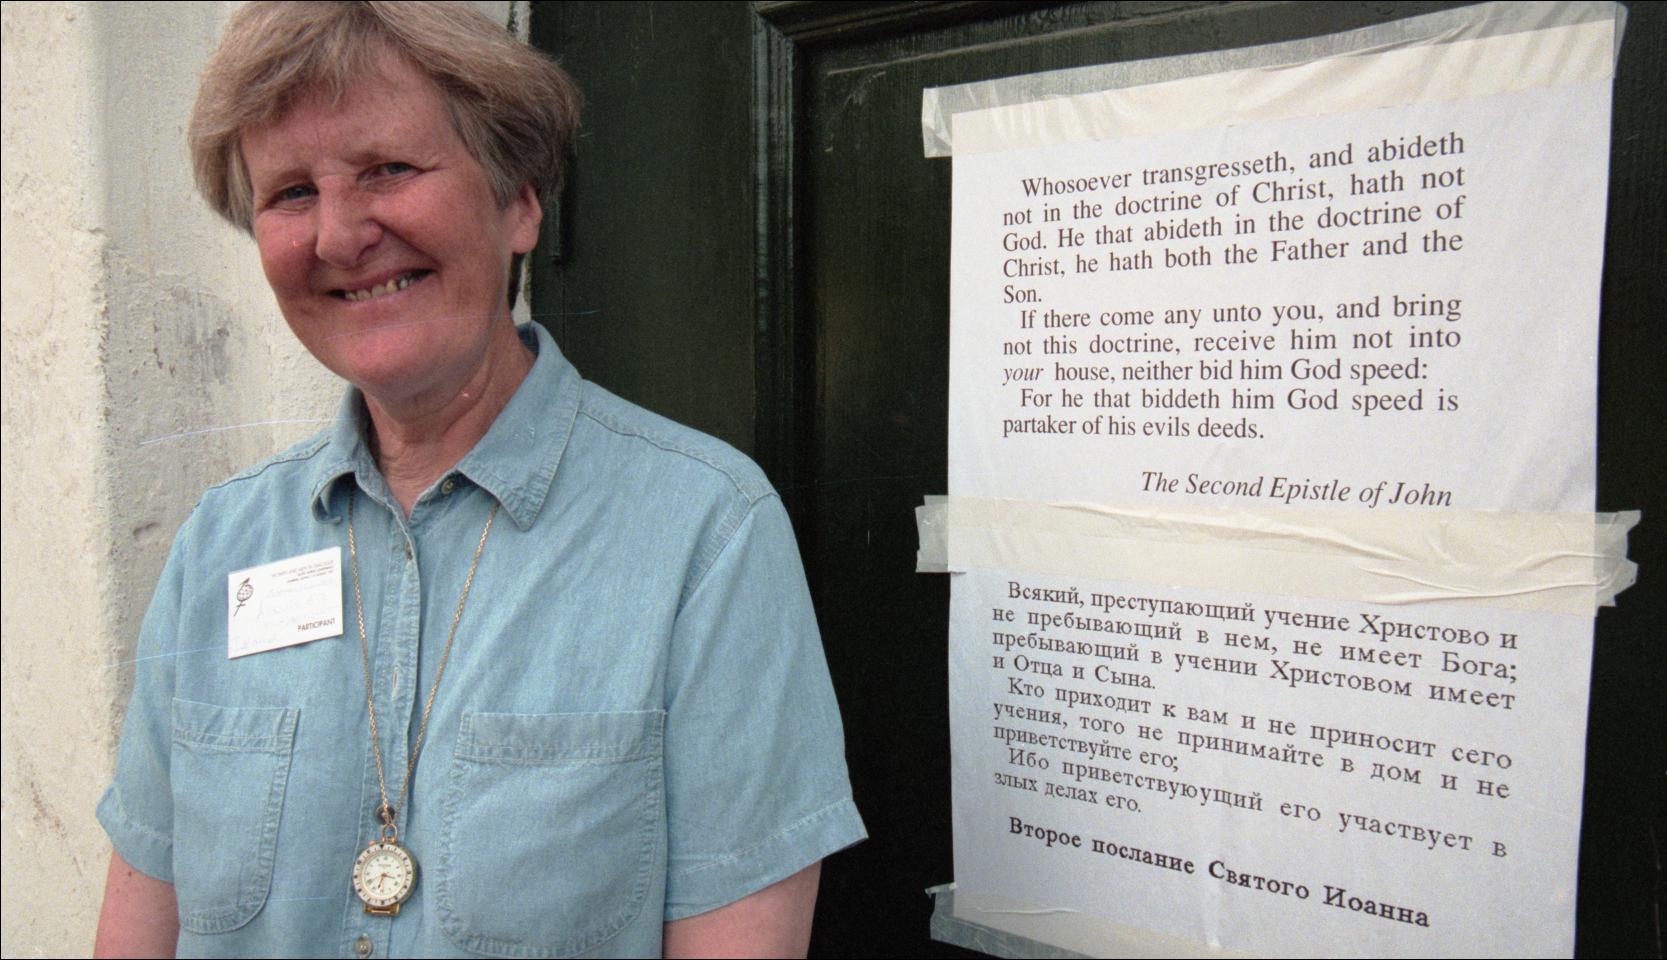 WOMEN AND MEN IN DIALOGUE
PARTICIPANT
Whosoever transgresseth, and abideth
not in the doctrine of Christ, hath not
God. He that abideth in the doctrine of
Christ, he hath both the Father and the
Son.
If there come any unto you, and bring
not this doctrine, receive him not into
your house, neither bid him God speed:
For he that biddeth him God speed is
partaker of his evils deeds.
The Second Epistle of John
Всякий, преступающий учение Христово и
не пребывающий в нем, не имеет Бога;
пребывающий в учении Христовом имеет
и Отца и Сына.
Кто приходит к вам и не приносит сего
учения, того не принимайте в дом и не
приветствуйте его;
Ибо приветствуюущий его участвует в
злых делах его.
Второе послание Святого Иоанна